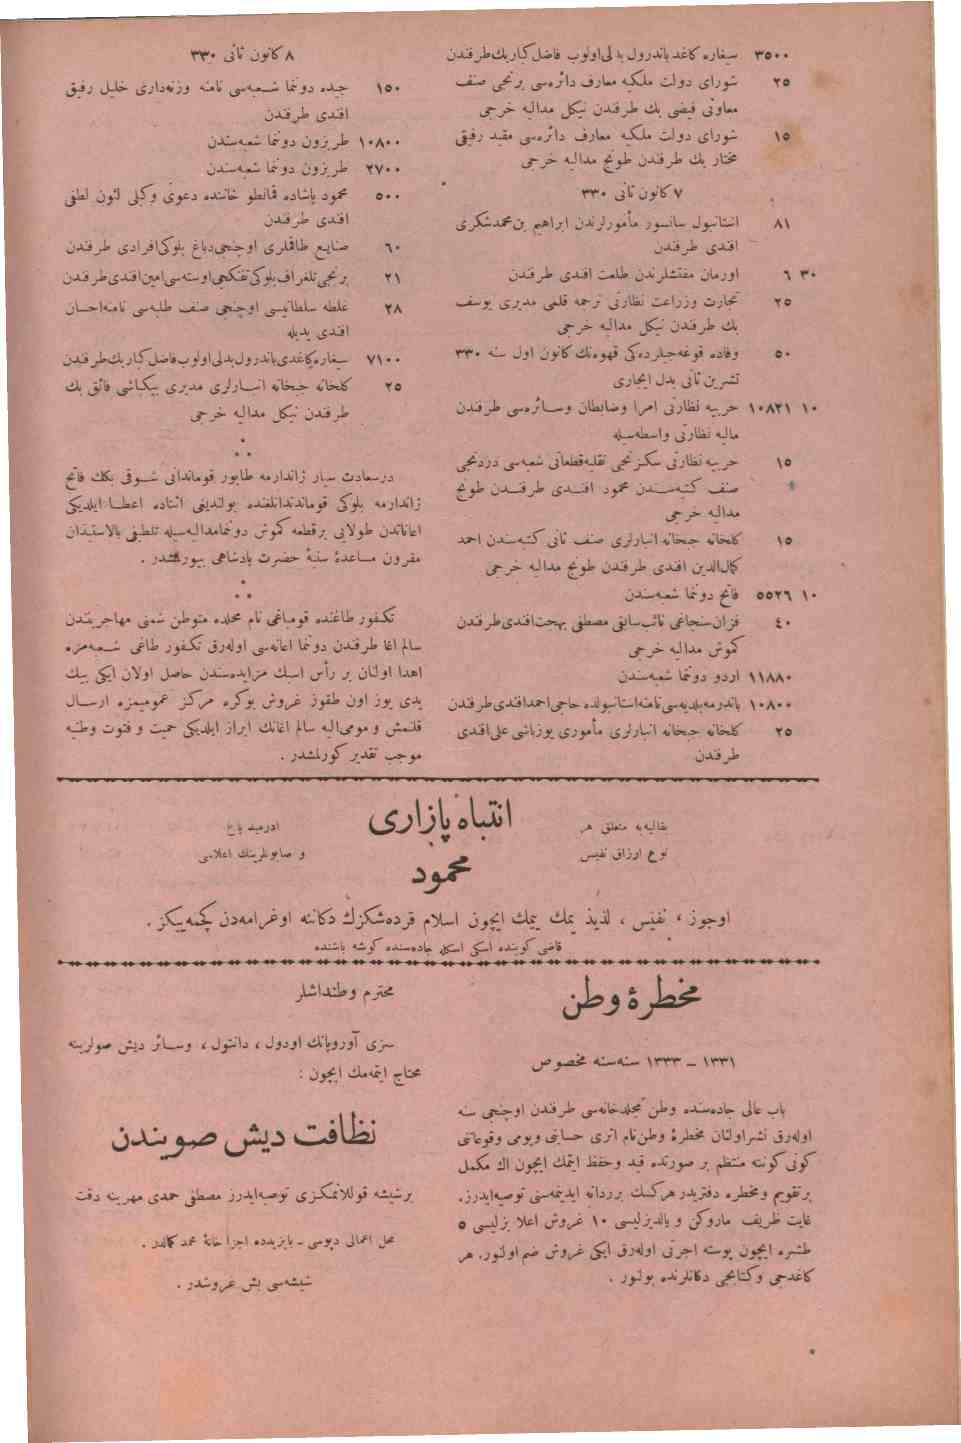 ٣٥٠٠ سیغاره کاغد باندرول بدلی اولوب فاضل کبار بك طرفندن
٢٥ شورای دولت ملکیه معارف دائره‌سی برنجی صنف
معاونی فیضی بك طرفندن نیکل مدالیه خرجی
١٥ شورای دولت ملکیه معارف دائره‌سی مقید رفیقی
مختار بك طرفندن طونج مدالیه خرجی
٧ کانون ثانی ٣٣٠
٨١ استانبول سانسور مأمورلرندن ابراهیم بن محمد شکری
افندی طرفندن
٣٠ ٦ اورمان مفتشلرندن طلعت افندی طرفندن
٢٥ تجارت وزراعت نظارتی ترجمه قلمی مدیری یوسف
بك طرفندن نیکل مدالیه خرجی
٥٠ وفاده قوغه‌جیلرده‌کی قهوه‌نك کانون اول سنه ٣٣٠
تشرین ثانی بدل ایجاری
١٠ ١٠٨٢١ حربیه نظارتی امرا وضابطان وسائره‌سی طرفندن
مالیه نظارتی واسطه‌سیله
١٥ حربیه نظارتی سکزنجی نقلیه قطعاتی شعبه‌سی دردنجی
صنف کتبه‌سندن محمود افندی طرفندن طونج
مدالیه خرجی
١٥ کلخانه جبخانه انبارلری صنف ثانی کتبه‌سندن احمد
کمال‌الدین افندی طرفندن طونج مدالیه خرجی
١٠ ٥٥٢٦ فاتح دونما شعبه‌سندن
٤٠ فزان سنجاغی نائب سابقی مصطفی بهجت افندی طرفندن
کموش مدالیه خرجی
١١٨٨٠ اردو دونما شعبه‌سندن
١٠٨٠٠ باندرمه بلدیه‌سی نامنه استانبولده حاجی احمد افندی طرفندن
٢٥ کلخانه جبخانه انبارلری مأموری یوزباشی علی افندی
طرفندن
٨ کانون ثانی ٣٣٠
١٥٠ جیده دونما شعبه‌سی نامنه وزنه‌داری خلیل رفیق
افندی طرفندن
١٠٨٠٠ طربزون دونما شعبه‌سندن
٢٧٠٠ طربزون دونما شعبه‌سندن
٥٠٠ محمود پاشاده قمانطو خاننده دعوی وکیلی لئون لطفی
افندی طرفندن
٦٠ صنایع طاقملری اوچنجی دباغ بلوکی افرادی طرفندن
٢١ برنجی تلغراف بلوکی تفنکجی اوسته‌سی امین افندی طرفندن
٢٨ غلطه سلطانیسی اوچنجی صنف طلبه‌سی نامنه احسان
افندی یدیله
٧١٠٠ سیغاره کاغدی باندرول بدلی اولوب فاضل کبار بك طرفندن
٢٥ کلخانه جبخانه انبارلری مدیری بیکباشی فائق بك
طرفندن نیکل مدالیه خرجی
درسعادت سیار ژاندارمه طابور قوماندانی شوقی بکك فاتح
ژاندارمه بلوکی قوماندانلغنده بولندیغی اثناده اعطا ایلدیکی
اعاناتدن طولایی برقطعه کموش دونما مدالیه‌سیله تلطیفی بالاستیذان
مقرون مساعدهٔ سنیهٔ حضرت پادشاهی بیورلمشدر .
تکفور طاغنده قومباغی نام محلده متوطن شمنی مهاجریندن
سالم اغا طرفندن دونما اعانه‌سی اوله‌رق تکفور طاغی شعبه‌مزه
اهدا اولنان بر رأس اسبك مزایده‌سندن حاصل اولان ایکی بیك
یدی یوز اون طقوز غروش بوکره مرکز عمومیمزه ارسال
قلنمش و مومی‌الیه سالم اغانك ابراز ایلدیکی حمیت و فتوت وطنیه
موجب تقدیر کورلمشدر .
بقالیه‌یه متعلق هر
نوع ارزاق نفیس
انتباه پازاری
محمود
ادرمید یاغ
و صابونلرینك اعلاسی
اوجوز ، نفیس ، لذیذ یمك ییمك ایچون اسلام قرده‌شکزك دکاننه اوغرامه‌دن کچمه‌ییکز .
قاضی کوینده اسکی اسکله جاده‌سنده کوشه باشنده
مخطرهٔ وطن
١٣٣١ ـ ١٣٣٣ سنه‌سنه مخصوص
باب عالی جاده‌سنده وطن مجلدخانه‌سی طرفندن اوچنجی سنه
اوله‌رق نشر اولنان مخطرهٔ وطن نام اثری حسابی ویومی وقوعاتی
کونی کوننه منتظم بر صورتده قید وحفظ ایتمك ایچون اك مکمل
برتقویم ومخطره دفتریدر هرکسك برردانه ایدینمه‌سنی توصیه‌ایدرز.
غایت ظریف ماروکن و یالدیزلیسی ١٠ غروش اعلا بزلیسی ٥
طشره ایچون پوسته اجرتی اوله‌رق ایکی غروش ضم اولنور. هر
کاغدجی وکتابجی دکانلرنده بولنور .
محترم وطنداشلر
سزی آوروپانك اودول ، دانتول ، وسائر دیش صولرینه
محتاج ایتمه‌مك ایچون :
نظافت دیش صویندن
برشیشه قوللانمنکزی توصیه‌ایدرز مصطفی حمدی مهرینه دقت
محل اعمالی دپوسی ـ بایزیدده اجزاخانهٔ محمد کمالدر .
شیشه‌سی بش غروشدر .